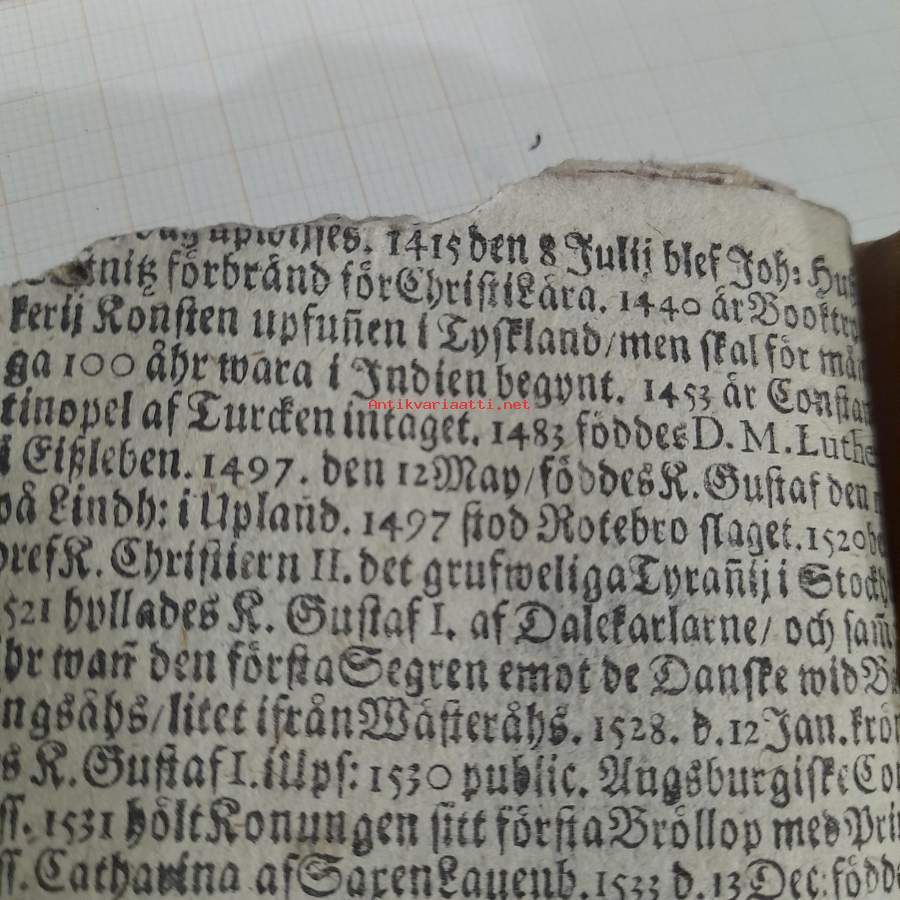 uplöstes. 1415 den 8 Julij blef Joh: Huß
förbränd för Christi Lära. 1440 är Booktry
kerij Konsten upfuñen i Tyskland/men skal för mån
ga 100 åhr wara i Indien begynt. 1453 är Constan
tinopel af Turcken intaget. 1483 föddes D. M. Luthe
i Eißleben. 1497. den 12 May/föddes K. Gustaf den
på Lindh: i Upland. 1497 stod Rotebro slaget. 1520 be
dref K. Christiern II. det grufweliga Tyrañij i Stockh
1521 hyllades K. Gustaf I. af Dalekarlarne/ och sam̃
åhr wañ den första Segren emot de Danske wid
ngsåhs/litet ifrån Wästeråhs. 1528. d. 12 Jan. krön
s K. Gustaf I. i Ups: 1530 public. Augsburgiske Con
ss. 1531 hölt Konungen sitt första Bröllop med Prin
ss. Catharina af Saxen Lauenb. 1533 d. 13 Dec: födde
Antikvariaatti.net